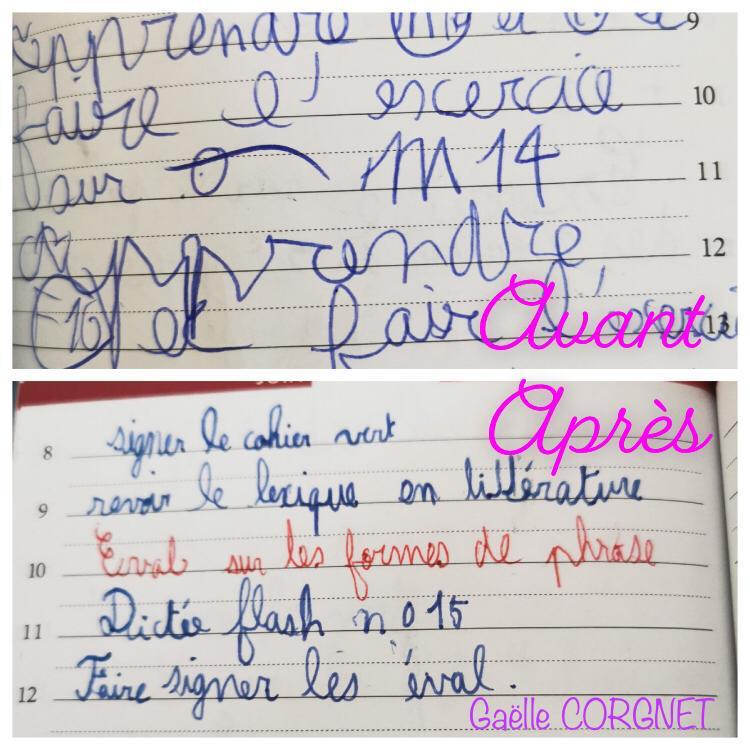 apprendre et 9
faire l' escercice 10
sur M 14 11
apprendre 12
F16 et faire l' 13
Avant
Après
8 signer le cahier vert
9 revoir le lexique en littérature
10 Eval sur les formes de phrase
11 Dictée flash n o 15
12 Faire signer les éval.
Gaëlle CORGNET